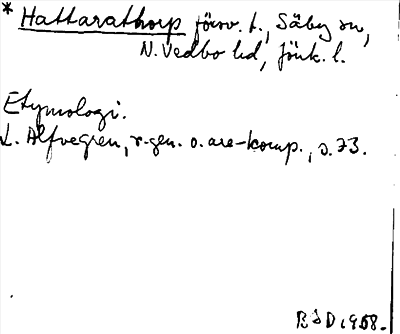 * Hattarathorp försv. t., Säby sn,
N. Vedbo hd, Jönk. l.
Etymologi.
L. Alfvegren, r-gen. o. are-komp., s. 73.
BJD 1958.